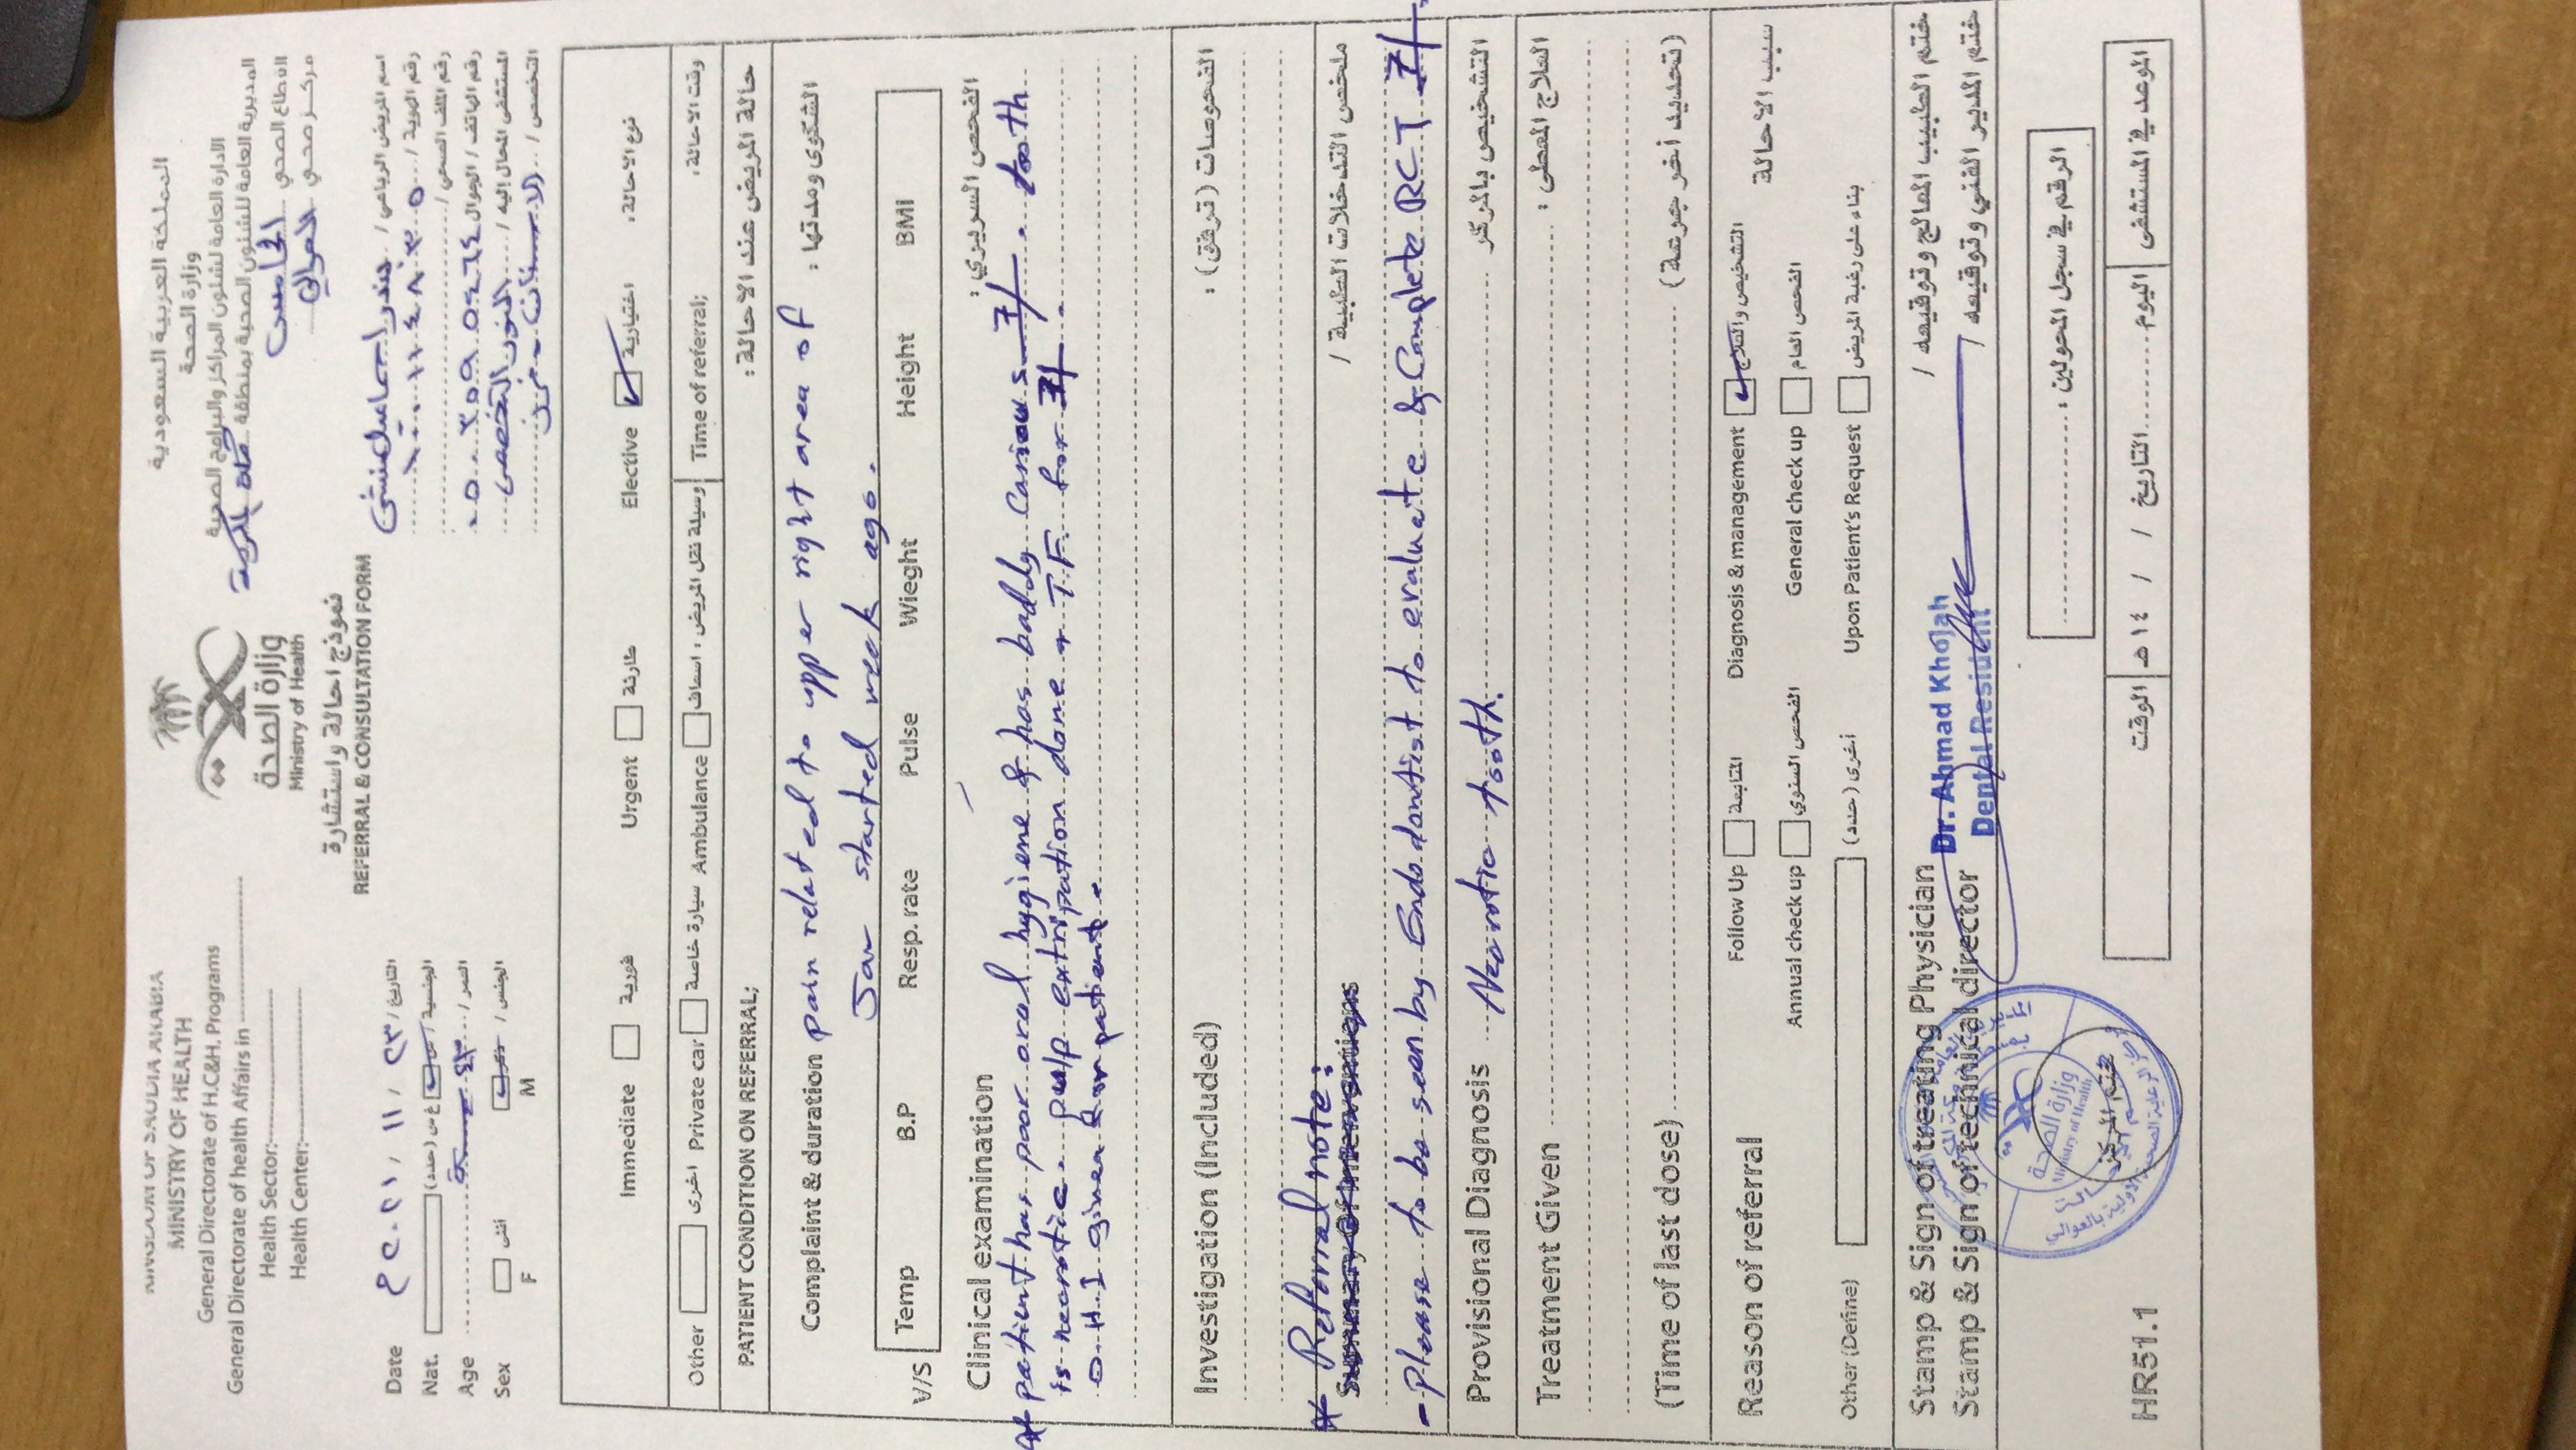 KINGDOM OF SAUDIA ARABIA
MINISTRY OF HEALTH
General Directorate of H.C&H. Programs
General Directorate of health Affairs in
Health Sector:
Health Center:
وزارة الصحة
Ministry of Health
نموذج احالة واستشارة
REFERRAL & CONSULTATION FORM
المملكة العربية السعودية
وزارة الصحة
الادارة العامة لشئون المراكز والبرامج الصحية
المديرية العامة للشئون الصحية بمنطقة مكة المكرمة
القطاع الصحي الخامس
مركز صحي العوالي
Date ٢٠٢١ / ١١ / ٢٣ م التاريخ /
Nat. غ س (حدد) س الجنسية /
Age ٤٣ سنة العمر /
Sex أنثى ذكر الجنس /
F M
اسم المريض الرباعي / بندر اسماعيل منشي
رقم الهوية / ١٠٠١١٤٨٣٠٥
رقم الملف الصحي /
رقم الهاتف / الجوال
المستشفى المحال إليه / النور التخصصي
التخصص / الاسنان -
Immediate فورية Urgent طارئة Elective اختيارية نوع الاحالة :
Other اخرى Private car سيارة خاصة Ambulance وسيلة نقل المريض : اسعاف Time of referral; وقت الاحالة :
PATIENT CONDITION ON REFERRAL; حالة المريض عند الاحالة :
Complaint & duration pain related to upper right area of الشكوى ومدتها :
Jaw started week ago.
V/S Temp B.P Resp. rate Pulse Wieght Height BMI
Clinical examination الفحص السريري :
* patient has poor oral hygiene & has baddy Carious 7/ . tooth
is necrotic. pulp extripation done + T.F. for 7/ .
O.H.I given for patient.
Investigation (Included) الفحوصات (ترفق) :
* Referral note:
Summary Of Interventions ملخص التدخلات الطبية /
- Please to be seen by Endodontist to evaluate & Complete RCT 7/.
Provisional Diagnosis Necrotic tooth. التشخيص بالمركز
Treatment Given العلاج المعطى :
(Time of last dose) (تحديد أخر جرعة)
Reason of referral Follow Up المتابعة Diagnosis & management التشخيص والعلاج سبب الاحالة
Annual check up الفحص السنوي General check up الفحص العام
Other (Define) أخرى (حدد) Upon Patient's Request بناء على رغبة المريض
Stamp & Sign of treating Physician Dr. Ahmad Khojah ختم الطبيب المعالج وتوقيعه /
Stamp & Sign of technical director Dental Resident ختم المدير الفني وتوقيعه /
وزارة الصحة
Ministry of Health
ختم المركز
الرقم في سجل المحولين :
HR51.1
الموعد في المستشفى اليوم التاريخ / / ١٤ هـ الوقت